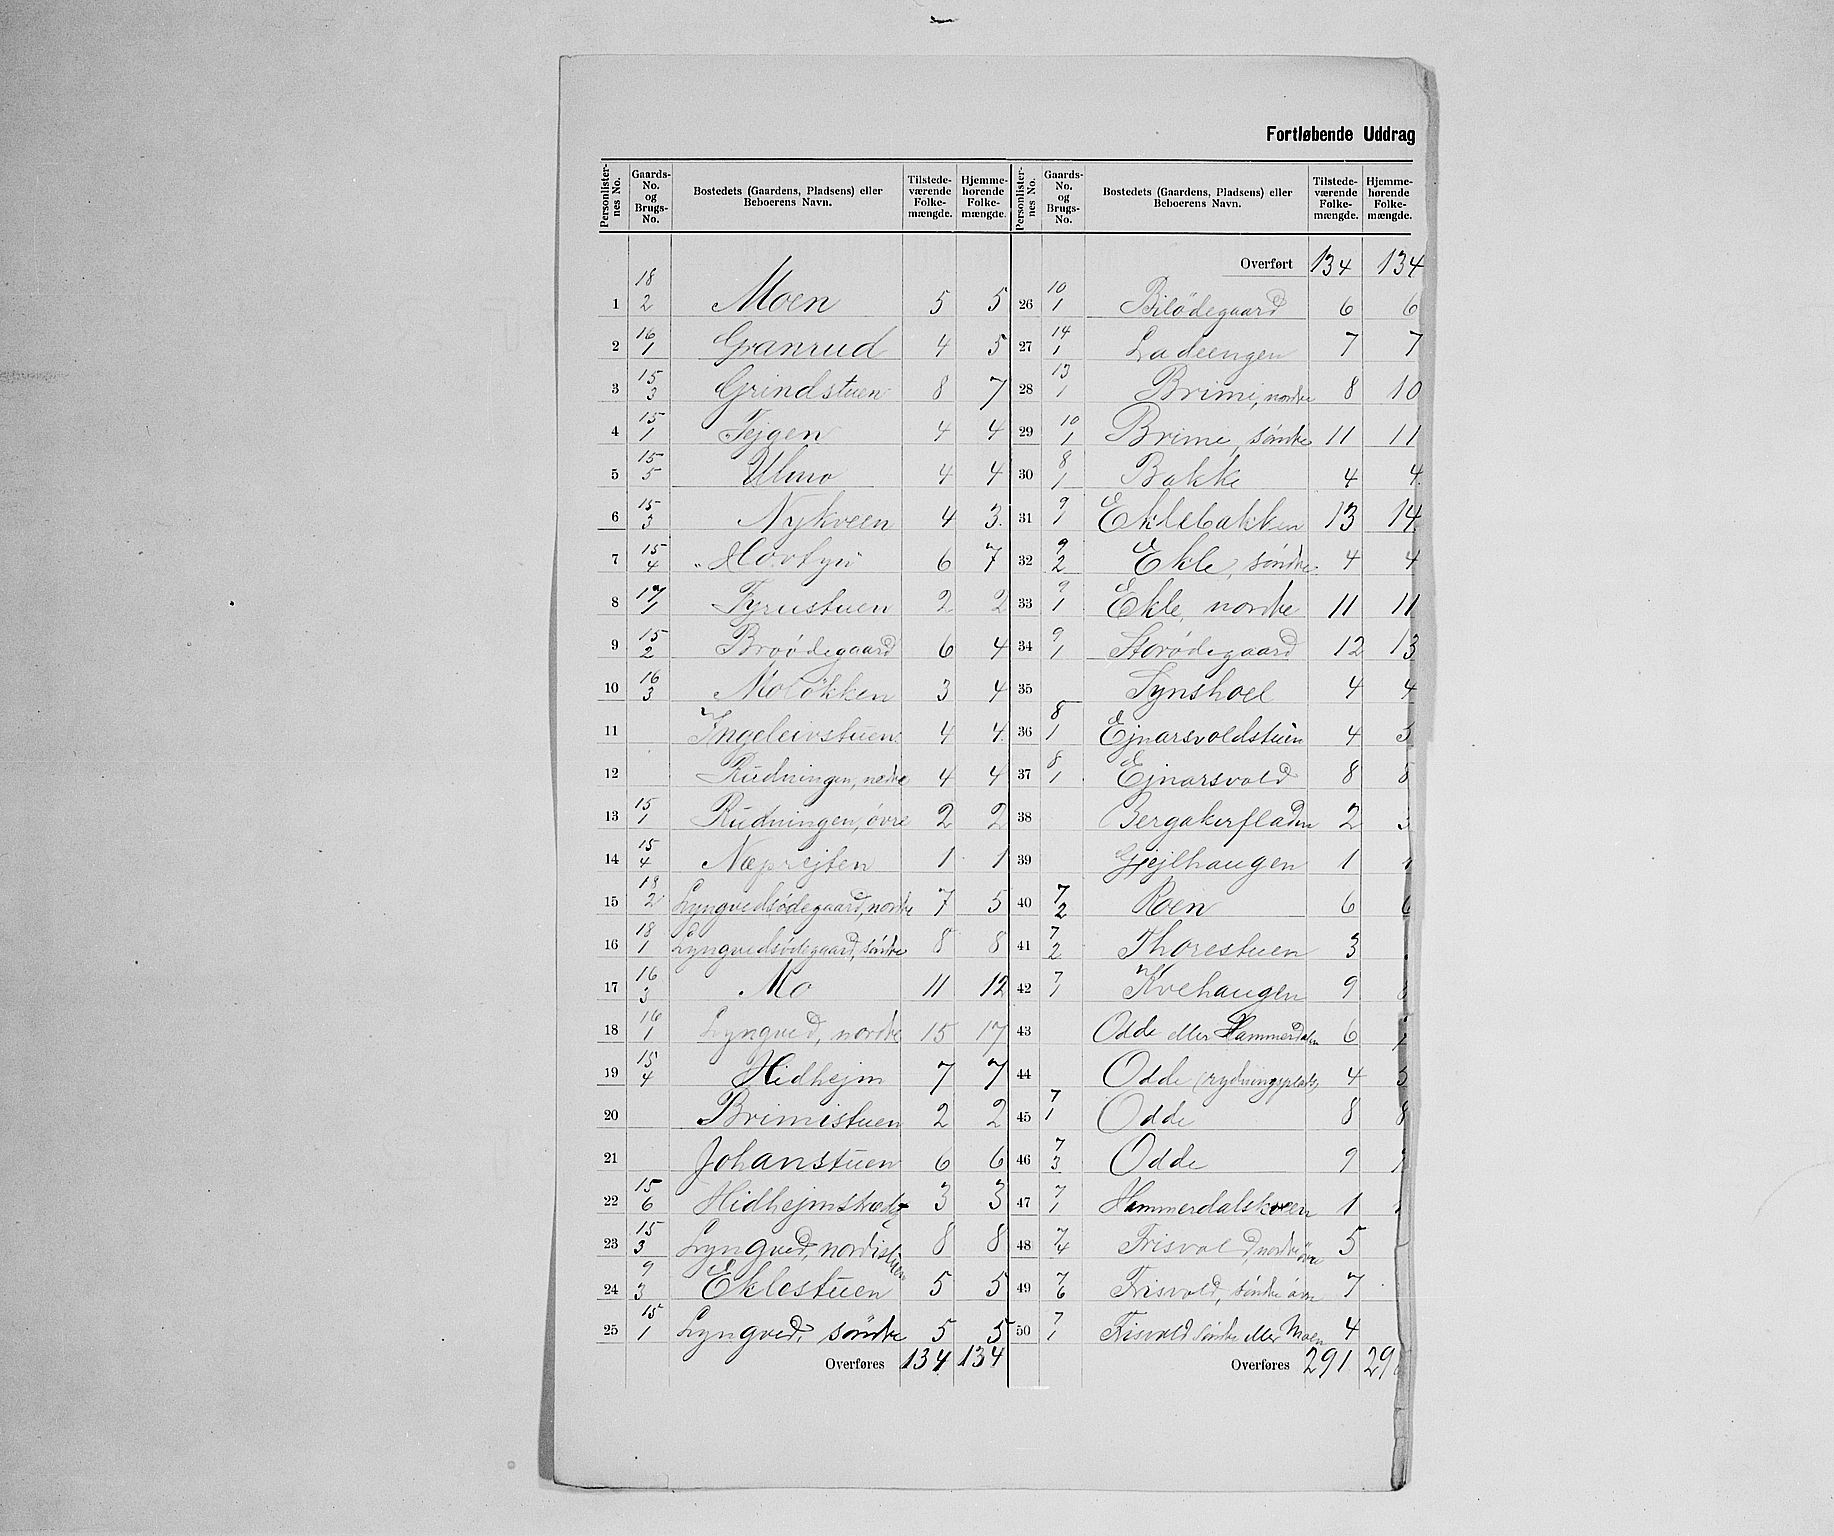 Fortløbende Uddrag
Personlister-nes No. Gaards-No. og Brugs-No. Bostedets (Gaardens, Pladsens) eller Beboerens Navn. Tilstede-værende Folke-mængde. Hjemme-hørende Folke-mængde. Personlister-nes No. Gaards-No. og Brugs-No. Bostedets (Gaardens, Pladsens) eller Beboerens Navn. Tilstede-værende Folke-mængde. Hjemme-hørende Folke-mængde.
1 18/2 Moen 5 5
2 16/1 Granrud 4 5
3 15/3 Grindstuen 8 7
4 15/1 Tejgen 4 4
5 15/5 Ulmo 4 4
6 15/3 Nykveen 4 3
7 15/4 6 7
8 17/1 Fyrustuen 2 2
9 15/2 Broödegaard 6 4
10 16/3 Moløkken 3 4
11 Ingeleivstuen 4 4
12 Rudningen, nedre 4 4
13 15/1 Rudningen, øvre 2 2
14 15/4 Næprejten 1 1
15 18/2 Lyngvedsödegaard, nordre 7 5
16 18/1 Lyngvedsödegaard, söndre 8 8
17 16/3 Mo 11 12
18 16/1 Lyngved, nordre 15 17
19 15/4 Hidhejm 7 7
20 Brimistuen 2 2
21 Johanstuen 6 6
22 15/6 3 3
23 15/3 Lyngved, nordistuen 8 8
24 9/3 Eklestuen 5 5
25 15/1 Lyngved, söndre 5 5
Overføres 134 134
Overført 134 134
26 10/1 Bilödegaard 6 6
27 14/1 Ladeengen 7 7
28 13/1 Brimi, nordre 8 10
29 10/1 Brime, söndre 11 11
30 8/1 Bakke 4 4
31 9/1 Eklebakken 13 14
32 9/2 Ekle, söndre 4 4
33 9/1 Ekle, nordre 11 11
34 9/1 Storödegaard 12 13
35 Synshoel 4 4
36 8/1 Ejnarsvoldstuen 4
37 8/1 Ejnarsvold 8 8
38 Bergakerfladen 2 3
39 Gjejlhaugen 1
40 7/2 Roen 6 6
41 7/2 Thorestuen 3
42 7/1 Kvehaugen 9
43 Odde eller Hammerdalen 6
44 Odde (rydningsplads) 4
45 7/1 Odde 8 8
46 7/3 Odde 9
47 7/1 Hammerdalskveen 1
48 7/4 Frisvold, nordre övre 5
49 7/6 Frisvold, söndre övre 7
50 7/1 Frisvold söndre eller Moen 4
Overføres 291 29